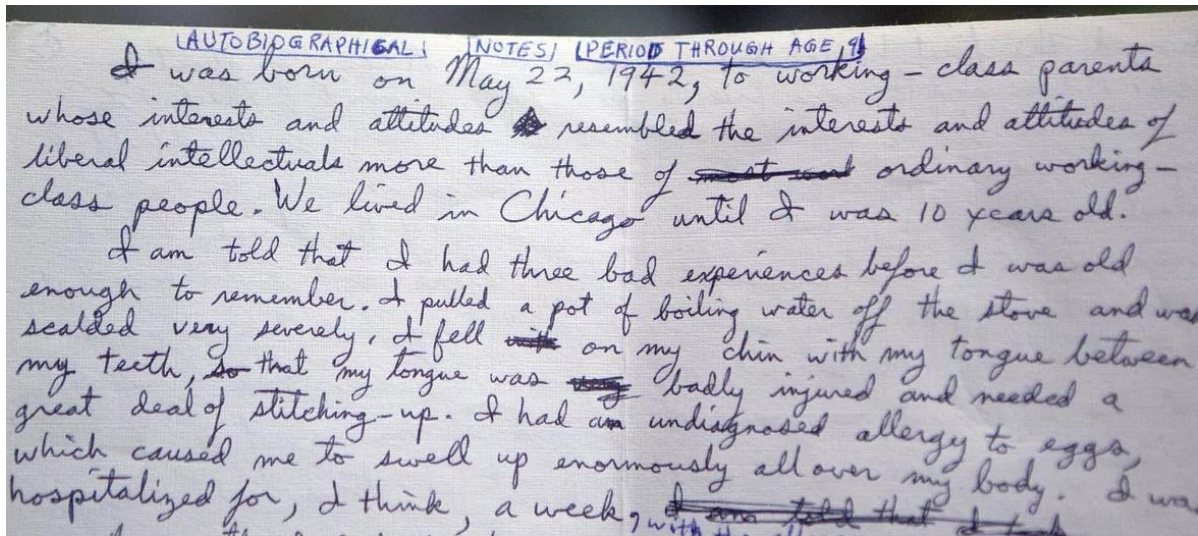 AUTOBIOGRAPHICAL NOTES PERIOD THROUGH AGE 9
I was born on May 22, 1942, to working-class parents
whose interests and attitudes resembled the interests and attitudes of
liberal intellectuals more than those of ordinary working-
class people. We lived in Chicago until I was 10 years old.
I am told that I had three bad experiences before I was old
enough to remember. I pulled a pot of boiling water off the stove and was
scalded very severely, I fell on my chin with my tongue between
my teeth, so that my tongue was badly injured and needed a
great deal of stitching-up. I had an undiagnosed allergy to eggs,
which caused me to swell up enormously all over my body. I was
hospitalized for, I think, a week, I am told that I took
with the